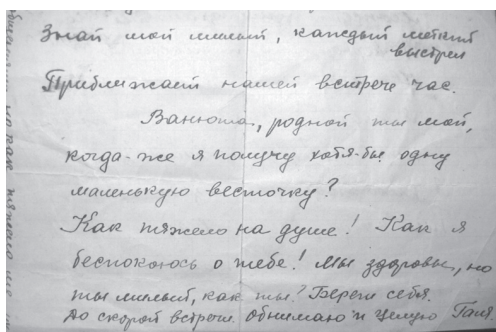 Знай мой милый, каждый меткий
выстрел
Приближает нашей встречи час.
Ванюша, родной ты мой,
когда-же я получу хотя-бы одну
маленькую весточку?
Как тяжело на душе! Как я
беспокоюсь о тебе! Мы здоровы, но
ты милый, как ты? Береги себя.
До скорой встречи. Обнимаю и целую Галя.